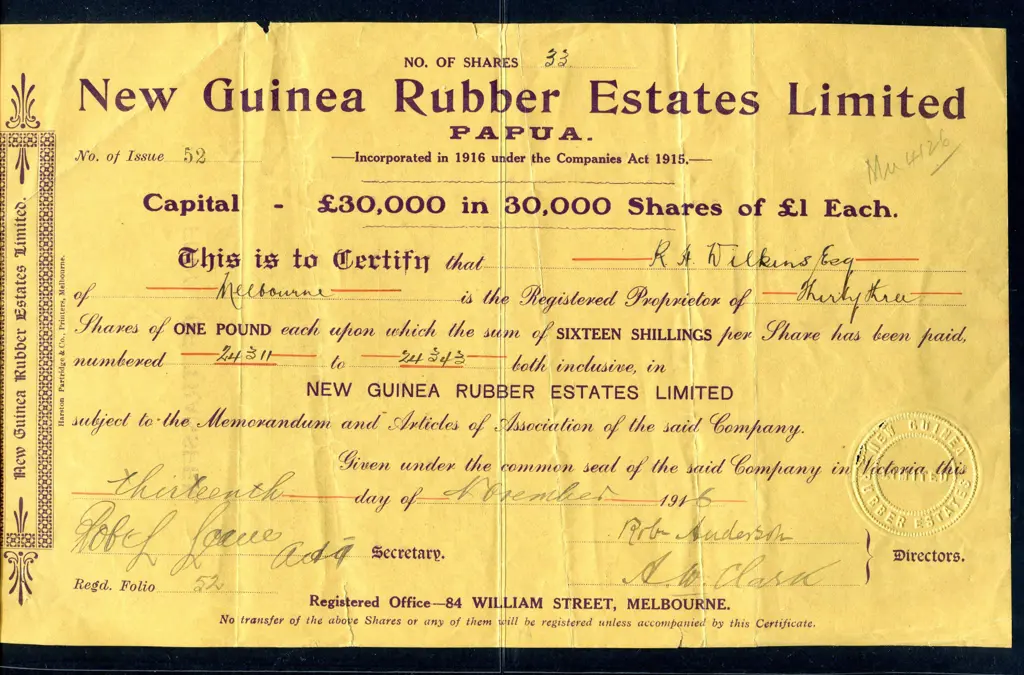 NO. OF SHARES 33
New Guinea Rubber Estates Limited
PAPUA.
No. of Issue 52
—Incorporated in 1916 under the Companies Act 1915.—
Capital - £30,000 in 30,000 Shares of £1 Each.
This is to Certify that R A Wilkins Esq
of Melbourne is the Registered Proprietor of Thirty three
Shares of ONE POUND each upon which the sum of SIXTEEN SHILLINGS per Share has been paid,
numbered 24311 to 24343 both inclusive, in
NEW GUINEA RUBBER ESTATES LIMITED
subject to the Memorandum and Articles of Association of the said Company.
Given under the common seal of the said Company in Victoria this
thirteenth day of November 1916
Secretary.
Robt Anderson
A W Clark
Directors.
Regd. Folio 52
Registered Office—84 WILLIAM STREET, MELBOURNE.
No transfer of the above Shares or any of them will be registered unless accompanied by this Certificate.
New Guinea Rubber Estates Limited.
Harston Partridge & Co., Printers, Melbourne.
NEW GUINEA RUBBER ESTATES
LIMITED